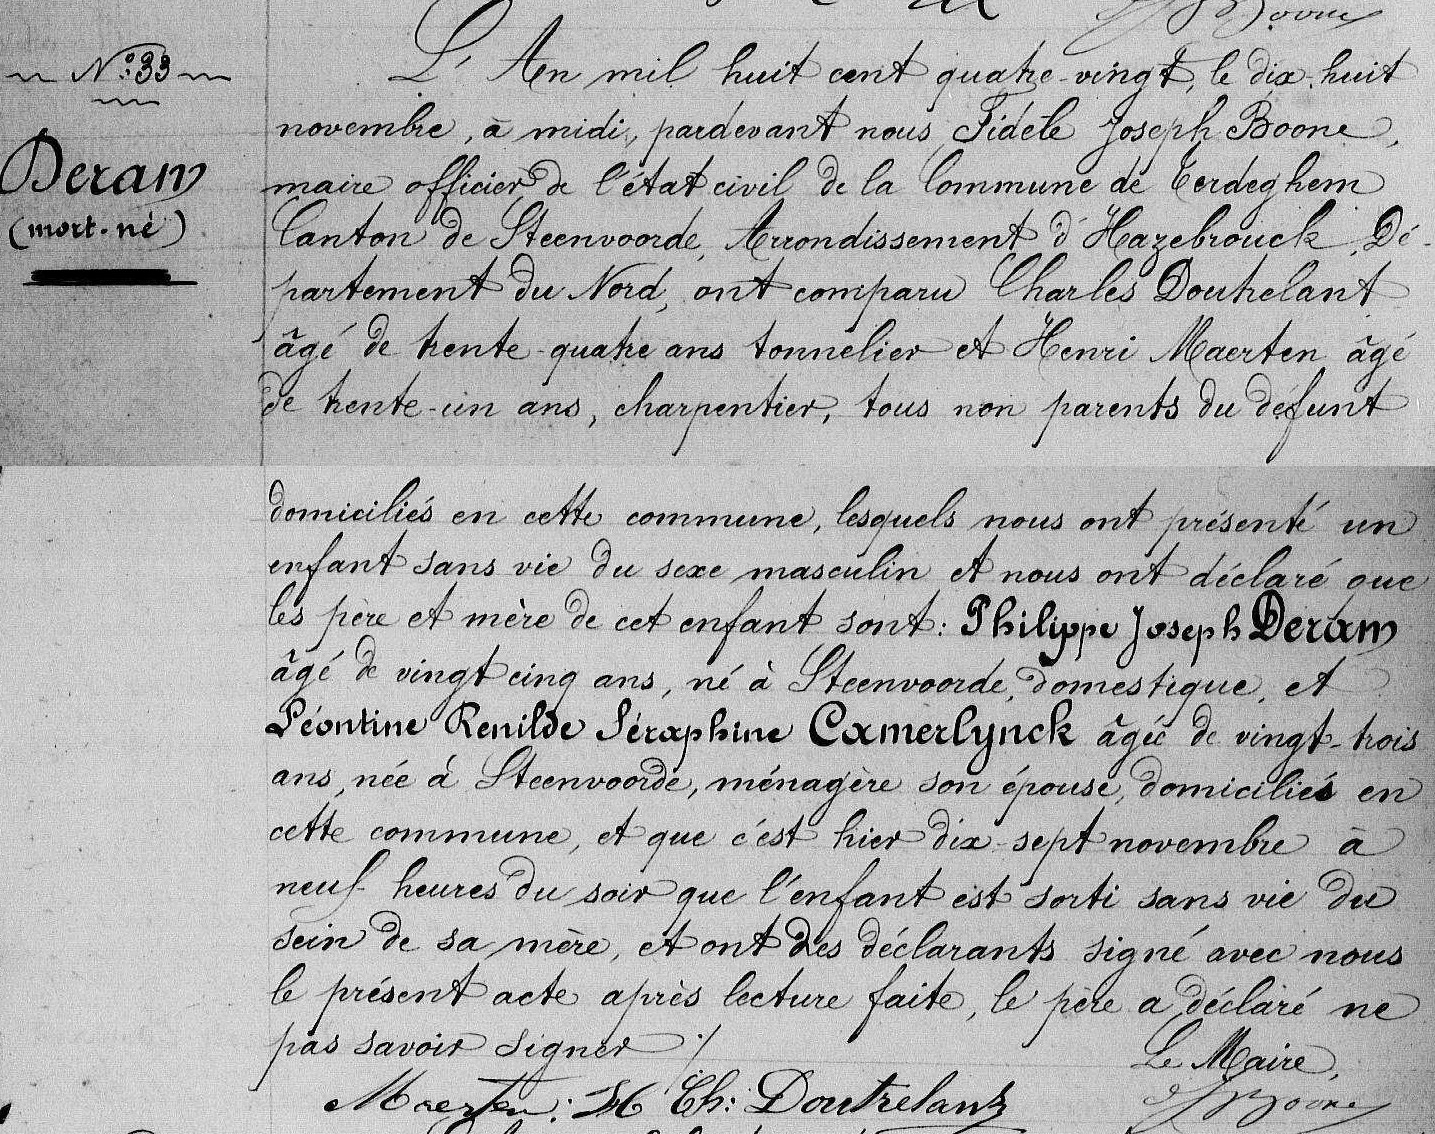 N° 33
Deram
(mort-né)
L'An mil huit cent quatre-vingt, le dix-huit
novembre, à midi, pardevant nous, Fidèle Joseph Boone,
maire officier de l'état civil de la Commune de Eerdeghem
Canton de Steenvoorde, Arrondissement d'Hazebrouck, Dé-
partement du Nord, ont comparu Charles Doutrelant
âgé de trente-quatre ans tonnelier et Henri Maerten âgé
de trente-un ans, charpentier, tous non parents du défunt
domiciliés en cette commune, lesquels nous ont présenté un
enfant sans vie du sexe masculin et nous ont déclaré que
les père et mère de cet enfant sont: Philippe Joseph Deram
âgé de vingt cinq ans, né à Steenvoorde, domestique, et
Léontine Renilde Séraphine Camerlynck âgée de vingt-trois
ans, née à Steenvoorde, ménagère son épouse, domiciliés en
cette commune, et que c'est hier dix-sept novembre à
neuf heures du soir que l'enfant est sorti sans vie du
sein de sa mère, et ont les déclarants signé avec nous
le présent acte après lecture faite, le père a déclaré ne
pas savoir signer ./
Le Maire,
Maerten. H Ch: Doutrelant
Boone